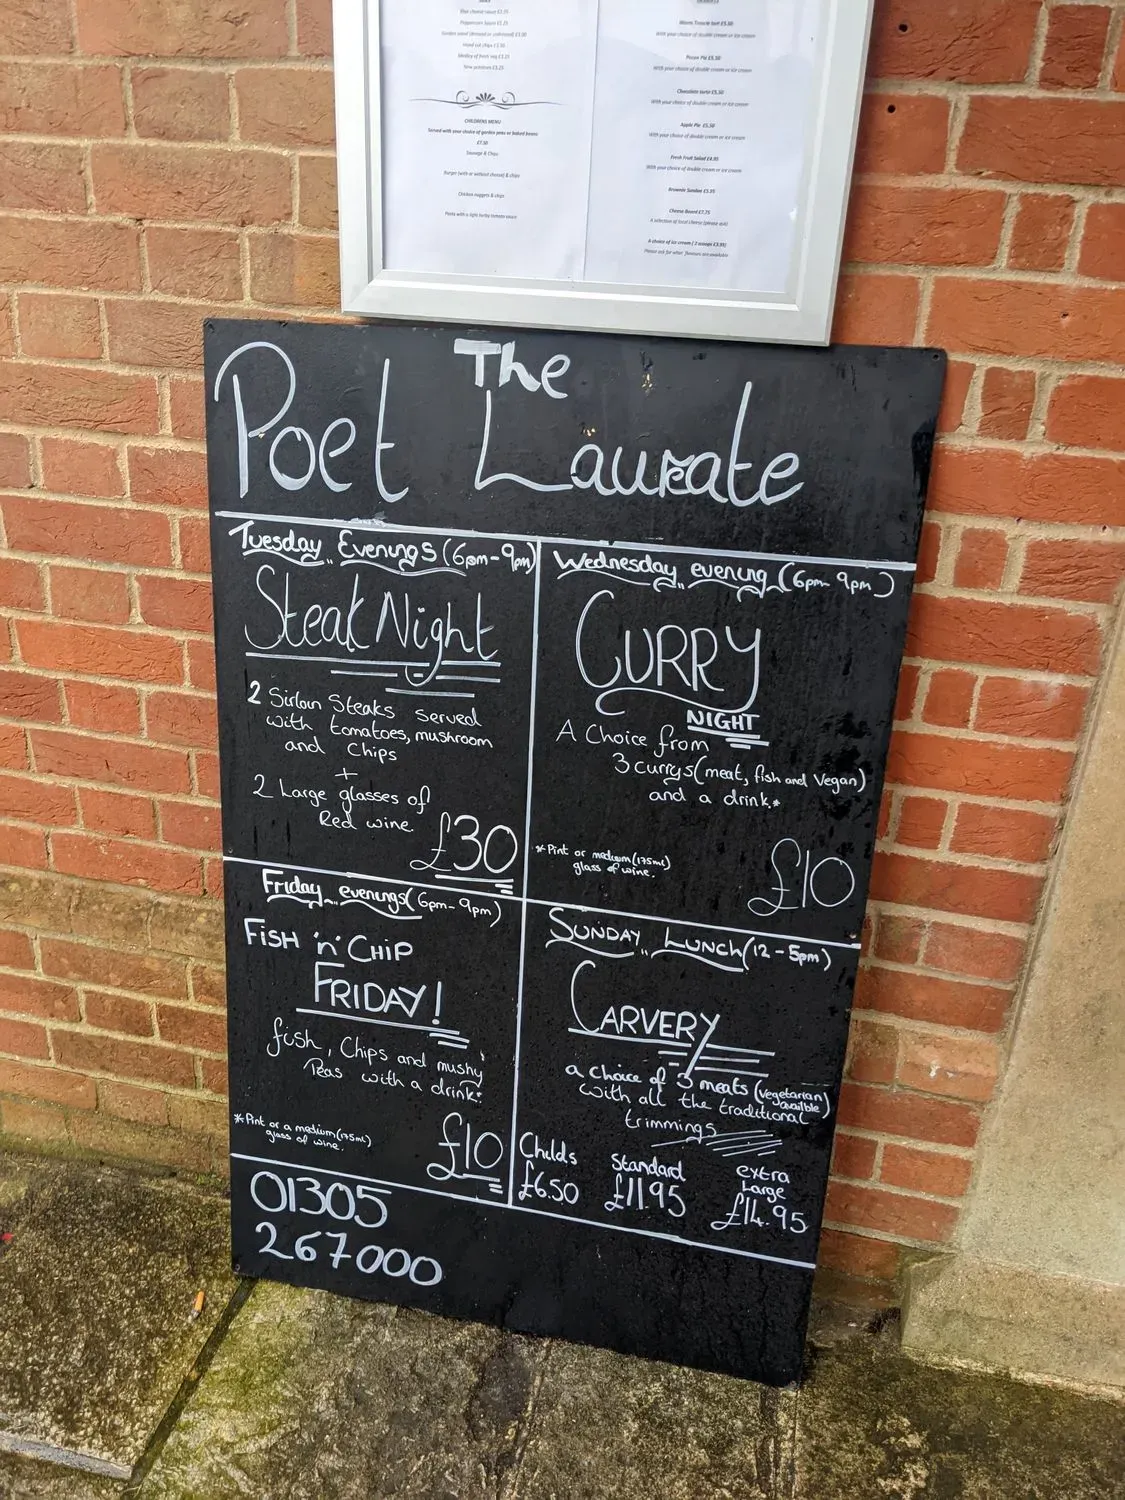 Blue cheese sauce £3.25
Peppercorn Sauce £3.25
Garden salad (dressed or undressed) £3.00
Hand cut chips £3.50
Medley of fresh veg £3.25
New potatoes £3.25
CHILDRENS MENU
Served with your choice of garden peas or baked beans
£7.50
Sausage & Chips
Burger (with or without cheese) & chips
Chicken nuggets & chips
Pasta with a light herby tomato sauce
Warm Treacle tart £5.50
With your choice of double cream or ice cream
Pecan Pie £5.50
With your choice of double cream or ice cream
Chocolate torte £5.50
With your choice of double cream or ice cream
Apple Pie £5.50
With your choice of double cream or ice cream
Fresh Fruit Salad £4.95
With your choice of double cream or ice cream
Brownie Sundae £5.95
Cheese Board £7.75
A selection of local cheese (please ask)
A choice of ice cream ( 2 scoops £3.95)
Please ask for what flavours are available
The
Poet Laureate
Tuesday Evenings (6pm - 9pm)
Steak Night
2 Sirloin Steaks served
with tomatoes, mushroom
and Chips
+
2 Large glasses of
Red wine
£30
Wednesday evening (6pm 9pm)
CURRY
NIGHT
A Choice from
3 currys (meat, fish and Vegan)
and a drink*
* Pint or medium (175ml)
glass of wine.
£10
Friday evenings (6pm - 9pm)
FISH 'n' CHIP
FRIDAY!
fish, Chips and mushy
Peas with a drink*
* Pint or a medium (175ml)
glass of wine.
£10
SUNDAY LUNCH (12 - 5pm)
CARVERY
a choice of 3 meats (vegetarian
availble)
with all the traditional
trimmings
Childs
£6.50
Standard
£11.95
extra
Large
£14.95
01305
267000